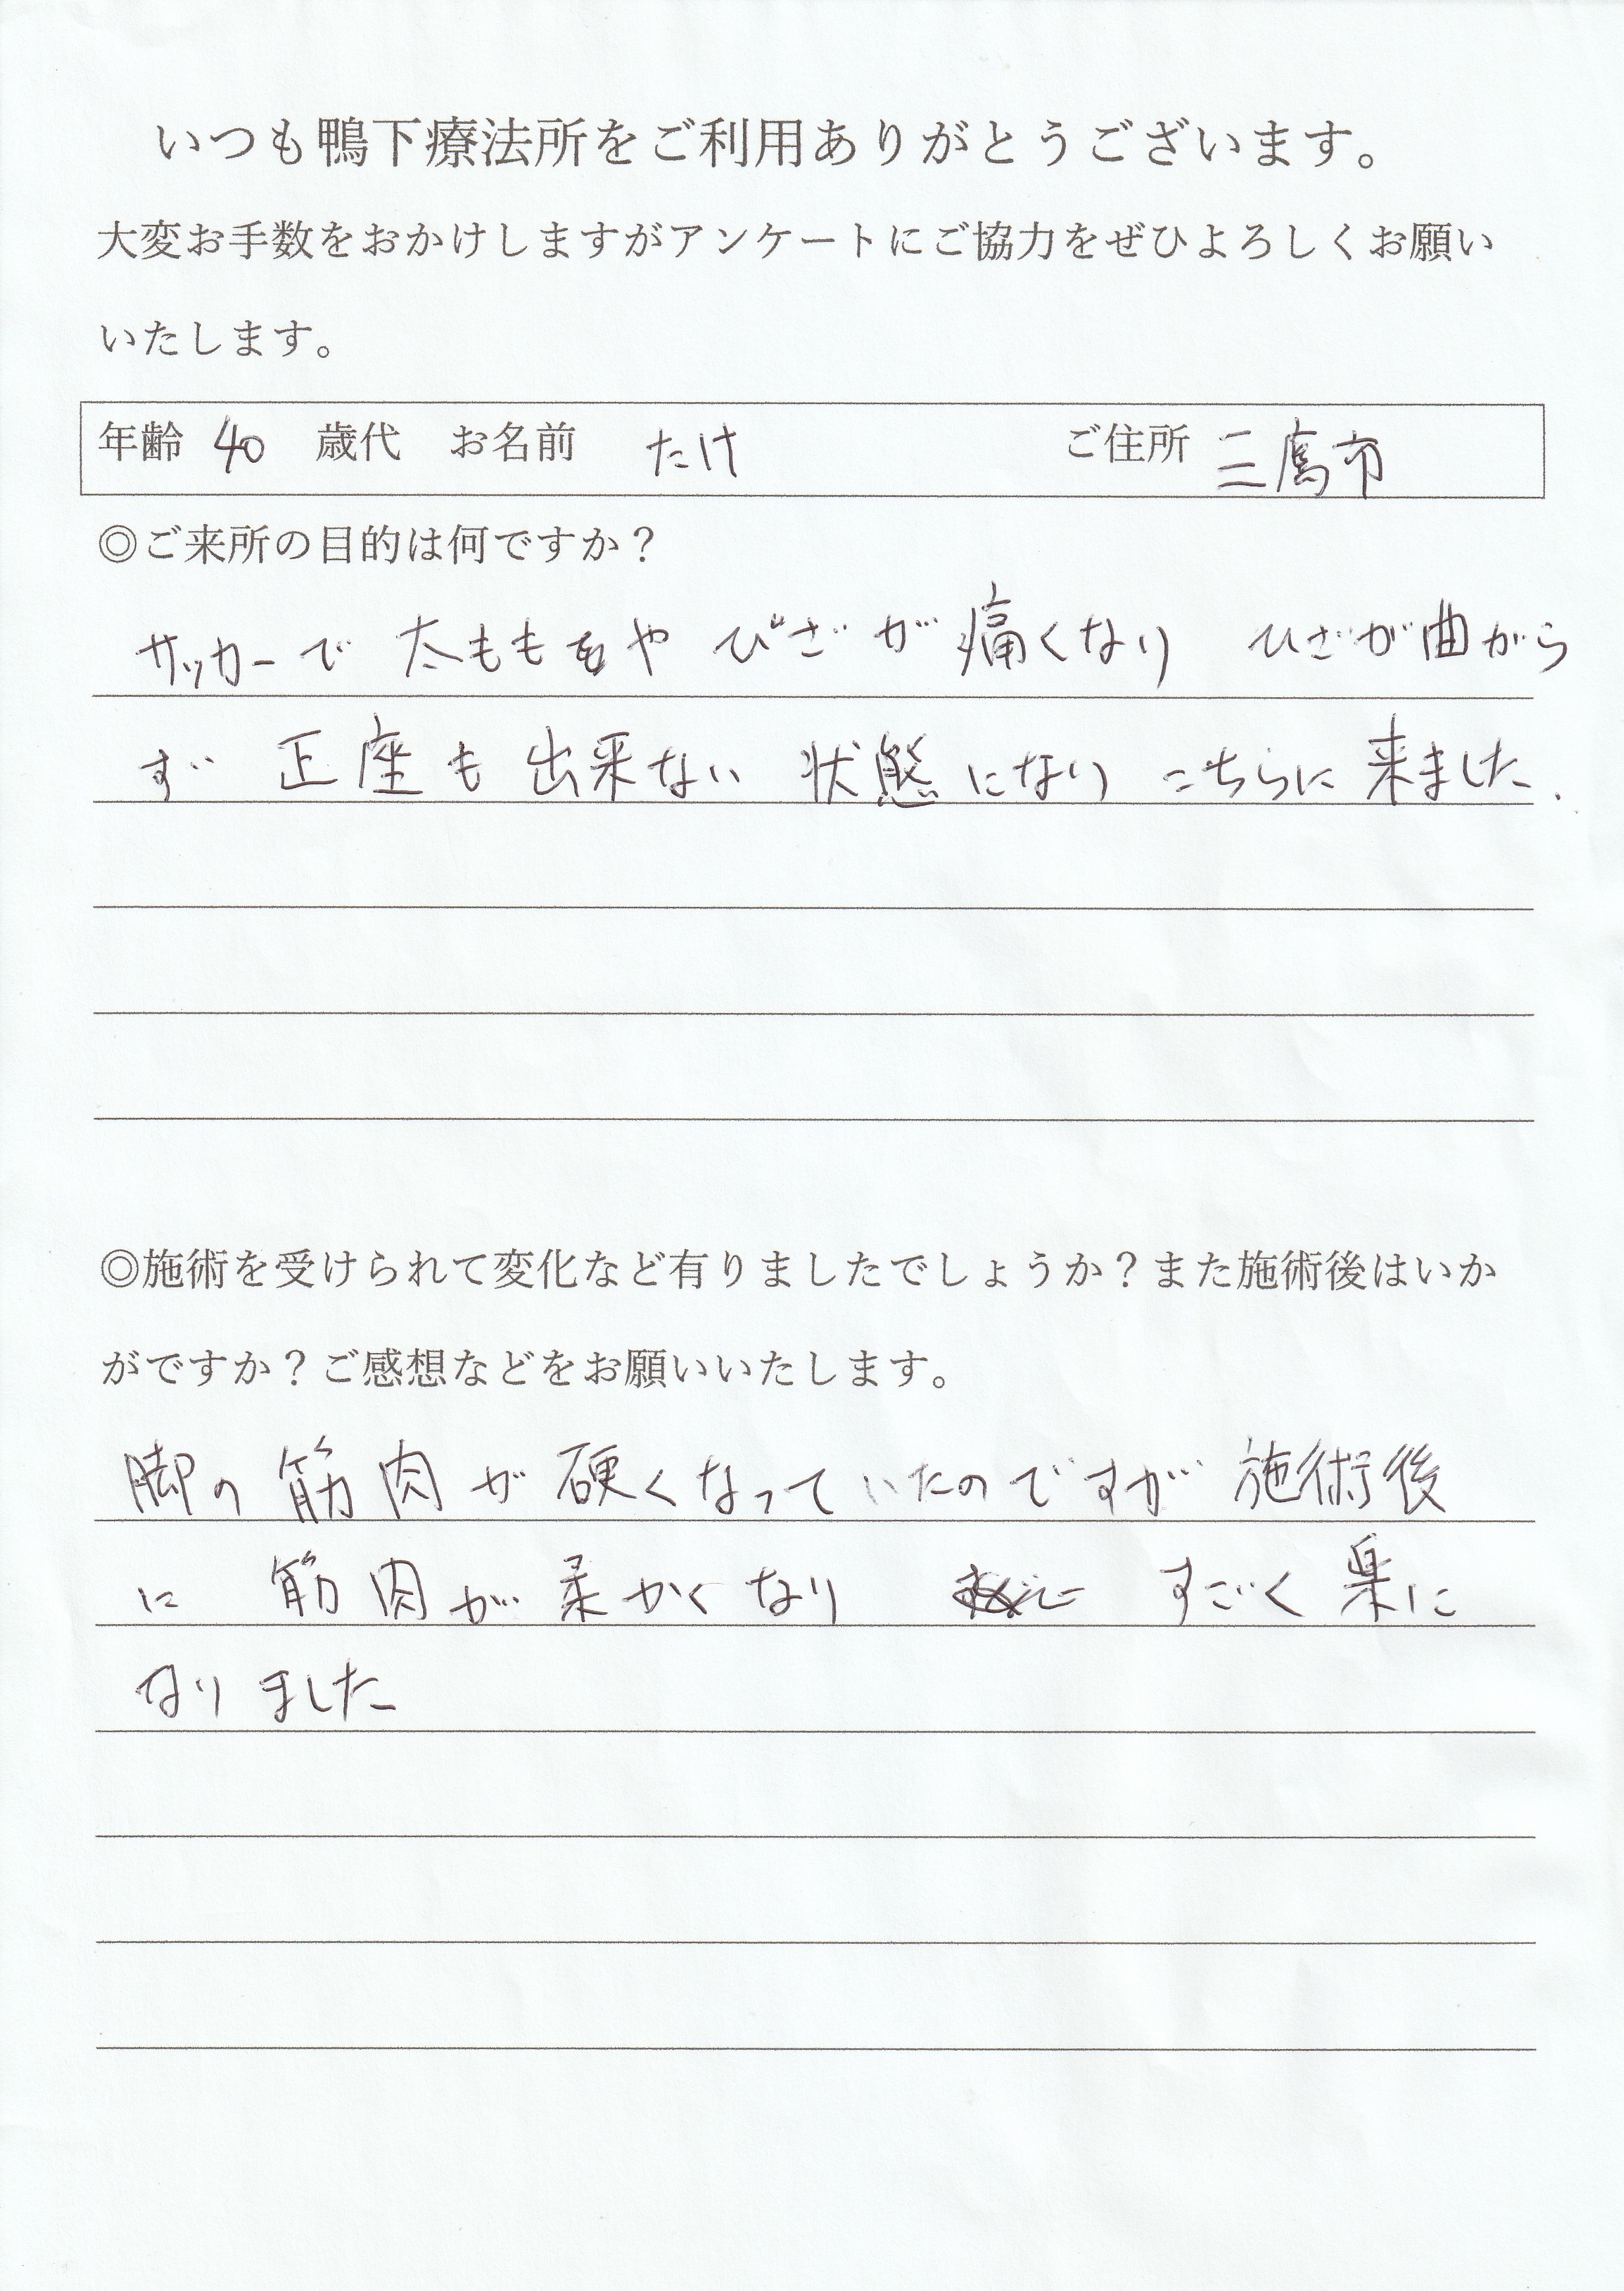 いつも鴨下療法所をご利用ありがとうございます。
大変お手数をおかけしますがアンケートにご協力をぜひよろしくお願い
いたします。
年齢 40 歳代 お名前 たけ ご住所 三鷹市
◎ご来所の目的は何ですか？
サッカーで 太ももや ひざが 痛くなり ひざが曲がら
ず 正座も 出来ない 状態になり こちらに 来ました.
◎施術を受けられて変化など有りましたでしょうか？また施術後はいか
がですか？ご感想などをお願いいたします。
脚の 筋肉が 硬くなって いたのですが 施術後
に 筋肉が 柔かく なり すごく 楽に
なりました